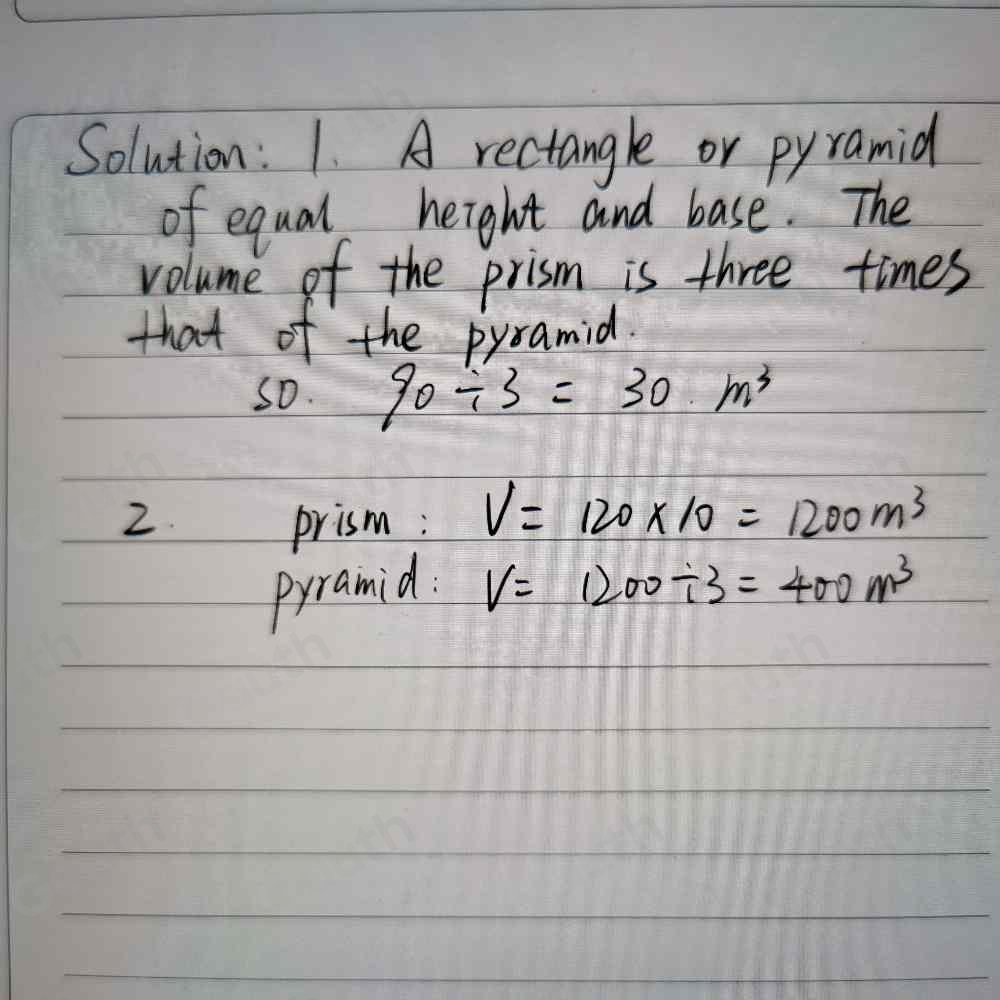 Solution: 1. A rectangle or pyramid
of equal height and base. The
volume of the prism is three times
that of the pyramid.
so. 90 ÷ 3 = 30. m³
2. prism: V = 120 × 10 = 1200 m³
pyramid: V = 1200 ÷ 3 = 400 m³